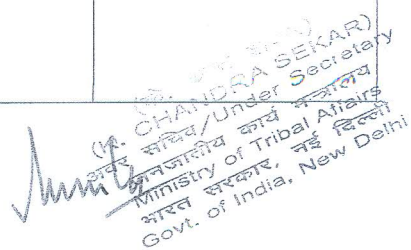 CHANDRA SEKAR)
अवर सचिव/Under Secretary
जनजातीय कार्य मंत्रालय
Ministry of Tribal Affairs
भारत सरकार, नई दिल्ली
Govt. of India, New Delhi